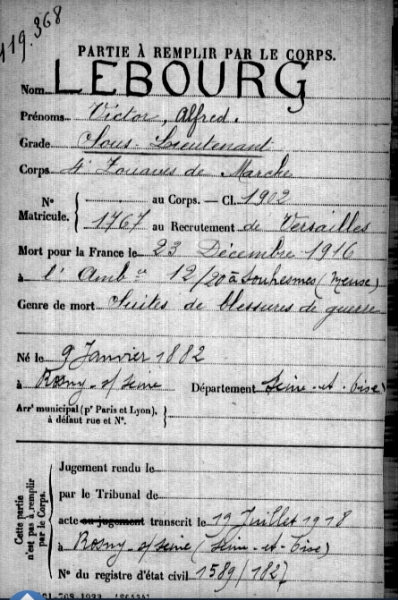 119.368
PARTIE À REMPLIR PAR LE CORPS.
Nom LEBOURG
Prénoms Victor, Alfred.
Grade Sous-Lieutenant
Corps 4e Zouaves de Marche
N° au Corps. — Cl. 1902
Matricule. 1767 au Recrutement de Versailles
Mort pour la France le 23 Décembre 1916
à l'Ambce 12/20 à Souhesmes (Meuse)
Genre de mort Suites de blessures de guerre
Né le 9 Janvier 1882
à Rosny-s/Seine Département Seine-et-Oise
Arrt municipal (pr Paris et Lyon),
à défaut rue et N°.
Cette partie
n'est pas à remplir
par le Corps.
Jugement rendu le
par le Tribunal de
acte ou jugement transcrit le 19 Juillet 1918
à Rosny-s/Seine (Seine-et-Oise)
N° du registre d'état civil 1589/1827